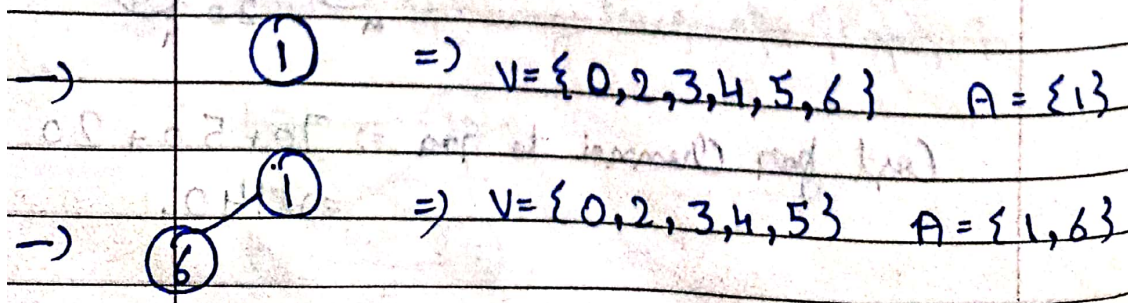 → 1 => V={0,2,3,4,5,6} A = {1}
1
→ 6 => V={0,2,3,4,5} A = {1,6}